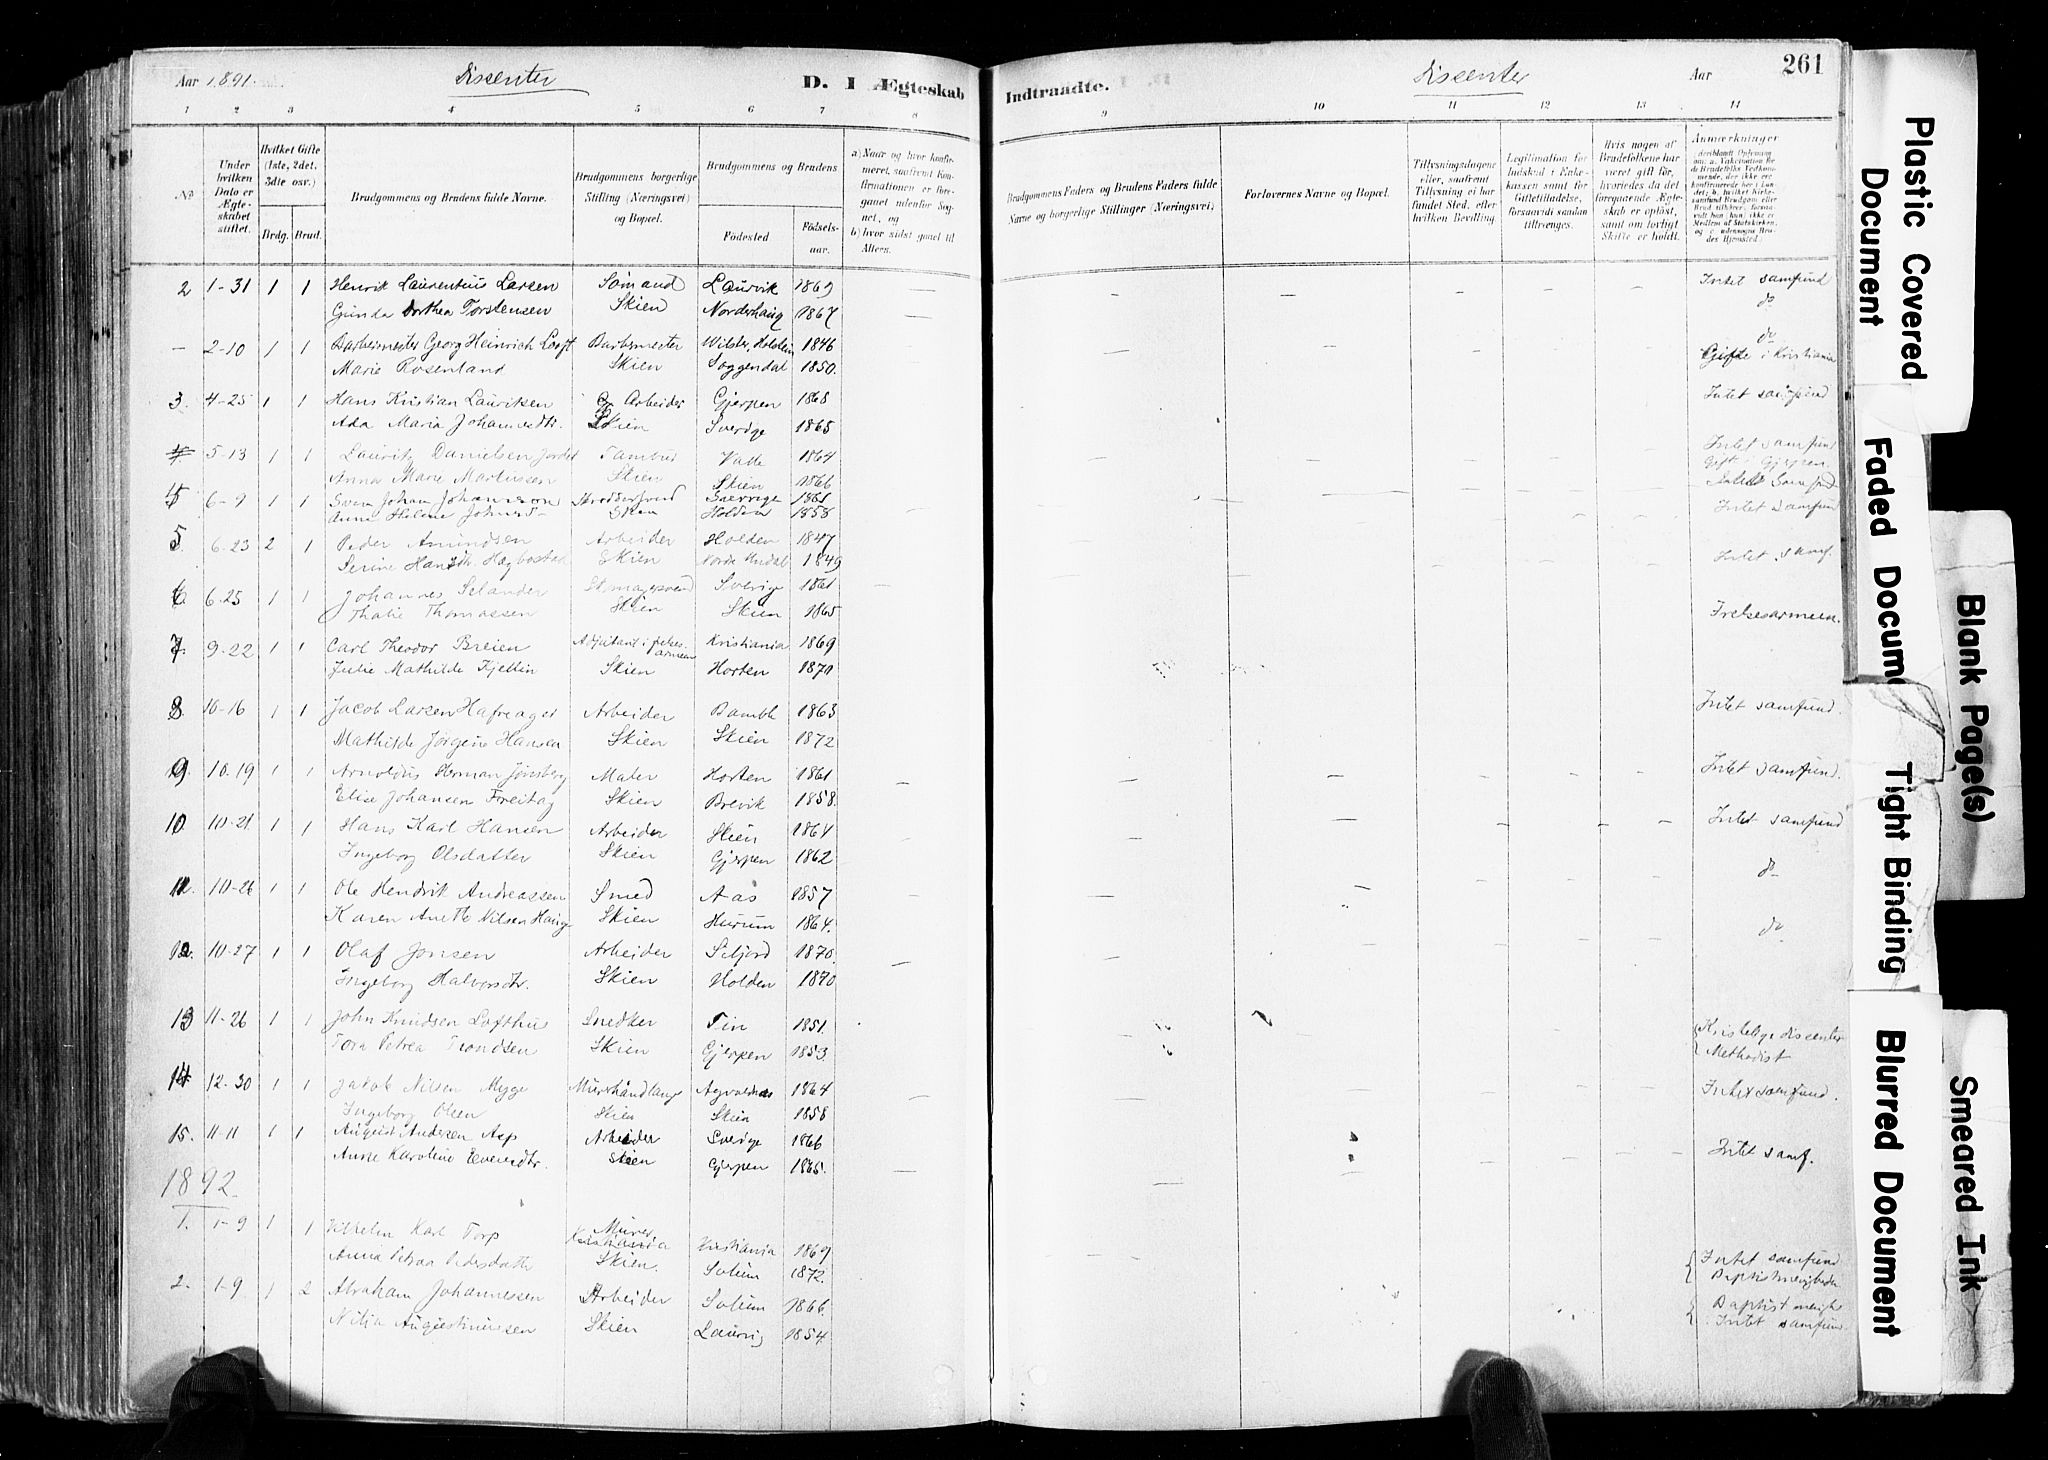 Aar 1891.
Dissenter
D. I Ægteskab
Indtraadte.
Dissenter
Aar
261
1 2 3 4 5 6 7 8 9 10 11 12 13 14
No
Under hvilken Dato er Ægteskabet stiftet.
Hvilket Gifte (1ste, 2det, 3die osv.)
Brdg. Brud.
Brudgommens og Brudens fulde Navne.
Brudgommens borgerlige Stilling (Næringsvei) og Bopæl.
Brudgommens og Brudens
Fødested
Fødselsaar.
a) Naar og hvor konfirmeret, saafremt Konfirmationen er foregaaet udenfor Sognet, og
b) hvor sidst gaaet til Alters.
Brudgommens Faders og Brudens Faders fulde Navne og borgerlige Stillinger (Næringsvei)
Forlovernes Navne og Bopæl.
Tillysningsdagene eller, saafremt Tillysning ei har fundet Sted, efter hvilken Bevilling.
Legitimation for Indskud i Enkekassen samt for Giftetilladelse, forsaavidt saadan tiltrænges.
Hvis nogen af Brudefolkene har været gift før, hvorledes da det foregaaende Ægteskab er opløst, samt om lovligt Skifte er holdt.
Anmærkninger
2 1-31 1 1 Henrik Laurentius Larsen Sømand Laurvik 1869 Intet samfund
Gunda Dorthea Torstensen Skien Norderhaug 1867 do
2-10 1 1 Barbermester Georg Heinrich Looft Barbermester Wilster, Holstein 1846 do
Marie Rosenland Skien Soggendal 1850. Gifte i Kristiania
3. 4-25 1 1 Hans Kristian Lauritsen Arbeider Gjerpen 1868 Intet samfund
Ada Maria Johannesdtr. Skien Sverige 1865
4. 5-13 1 1 Lauritz Danielsen Jordet Tambur Valle 1864 Intet samfund
Anna Marie Martinsen Skien Skien 1866 Gift i Gjerpen.
6-9 1 1 Sven Johan Johansson Skien Sverrige 1861 Intet Samfund
Anne Helene Johnsd Holden 1858 Intet samfund
5. 6-23 2 1 Peder Amundsen Arbeider Holden 1847
Serine Hansdtr. Hægbostad Skien 1849 Intet samf.
6. 6-25 1 1 Johannes Selander Skomagersvend Sverige 1861
Thalie Thomassen Skien Skien 1865 Frelsesarmeen.
7. 9-22 1 1 Carl Theodor Breien Adjutant i frelsesarmeen Kristiania 1869
Julie Mathilde Kjellin Skien Horten 1871
8. 10-16 1 1 Jacob Larsen Hafreager Arbeider Bamble 1863 Intet samfund.
Mathilde Jørgine Hansen Skien Skien 1872
9. 10-19 1 1 Arnoldus Herman Jønsberg Maler Horten 1861 Intet samfund.
Elise Johansen Freitag Skien Brevik 1858.
10. 10-21 1 1 Hans Karl Hansen Arbeider Skien 1864 Intet samfund
Ingeborg Olsdatter Skien Gjerpen 1862
11. 10-26 1 1 Ole Hendrik Andreassen Smed Aas 1857 do
Karen Anette Nilsen Hauge Skien Hurum 1864.
12. 10-27 1 1 Olaf Jonsen Arbeider Siljord 1870. do
Ingeborg Halvorsdtr. Skien Holden 1870
13 11-26 1 1 John Knudsen Lofthus Snedker Tin 1851. Kristelige dissenter
Tora Petrea Trondsen Skien Gjerpen 1853. Methodist
14 12-30 1 1 Jakob Nilsen Myge Murerhåndlang Agvaldnæs 1864 Intet samfund.
Ingeborg Olsen Skien Skien 1858
15. 11-11 1 1 August Andersen Asp Arbeider Sverige 1866
Anne Karoline Evensdtr. Skien Gjerpen 1865. Intet samf.
1892.
1. 1-9 1 1 Vilhelm Karl Torp Murer Kristiania Kristiania 1869 Intet samfund
Anna Petrea Pedersdatter Skien. Solum 1872. Baptistmenigheden
2. 1-9 1 2 Abraham Johannessen Arbeider Solum 1866. Baptist menigh
Nilia Augustinussen Skien Laurvig 1854. Intet samfund.
Plastic Covered Document
Faded Docume
Blank Page(s)
Tight Binding
Blurred Document
Smeared Ink